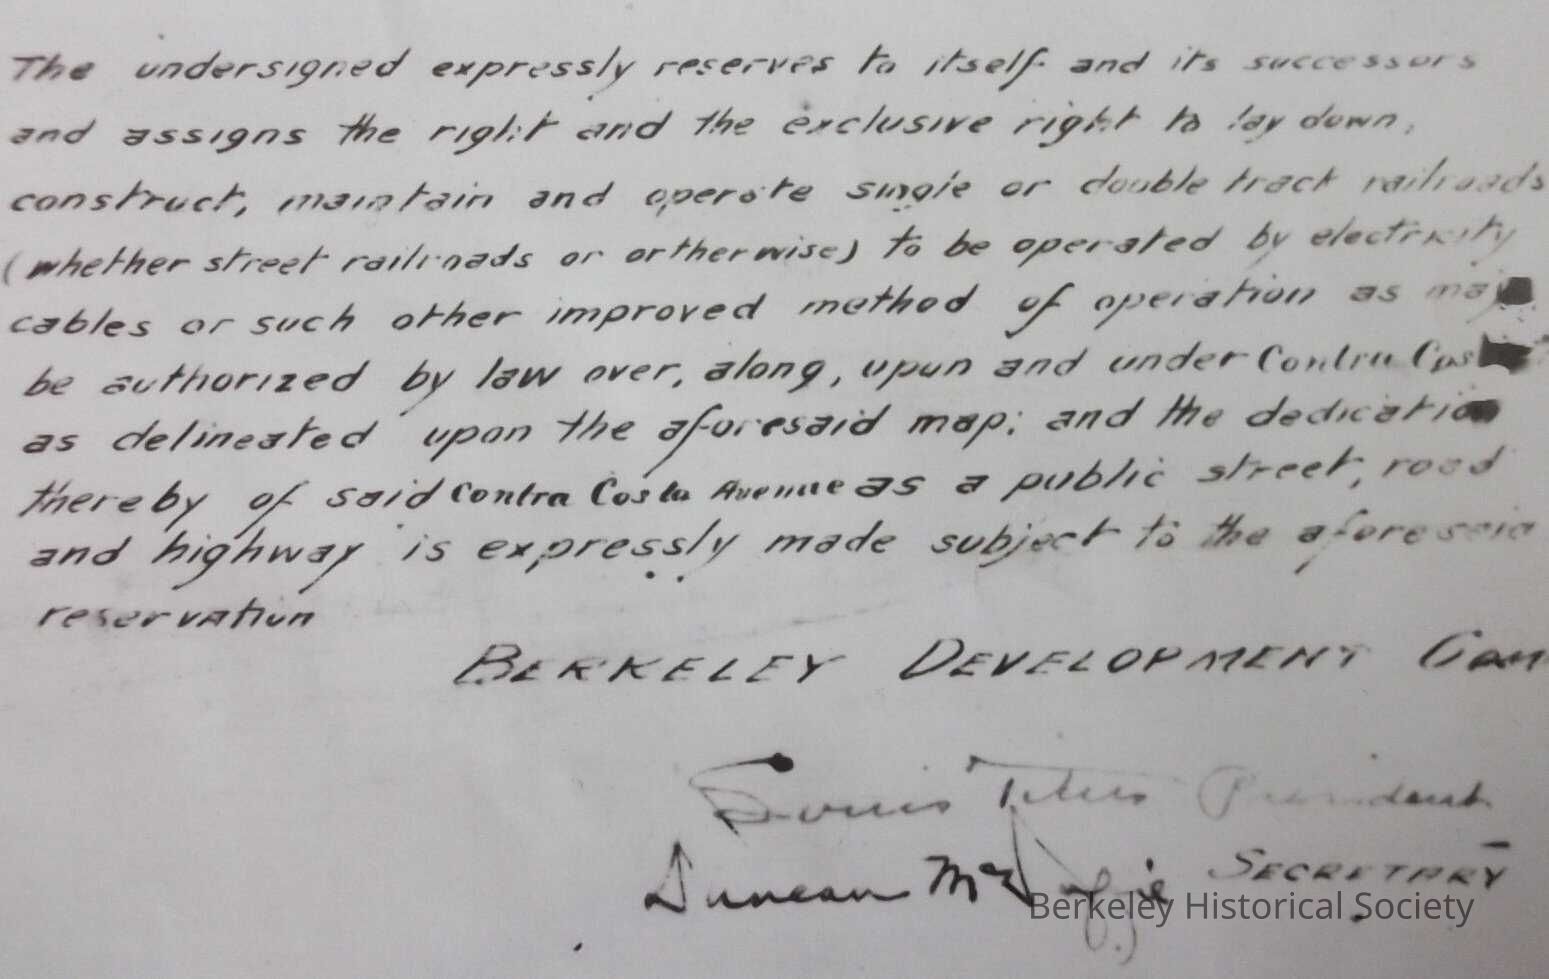 The undersigned expressly reserves to itself and its successors
and assigns the right and the exclusive right to lay down,
construct, maintain and operate single or double track railroads
(whether street railroads or ortherwise) to be operated by electricity
cables or such other improved method of operation as may
be authorized by law over, along, upon and under Contra Cos
as delineated upon the aforesaid map; and the dedication
thereby of said Contra Costa Avenue as a public street, road
and highway is expressly made subject to the aforesaid
reservation
BERKELEY DEVELOPMENT COM
Louis Titus President
Duncan McDuffie SECRETARY
Berkeley Historical Society